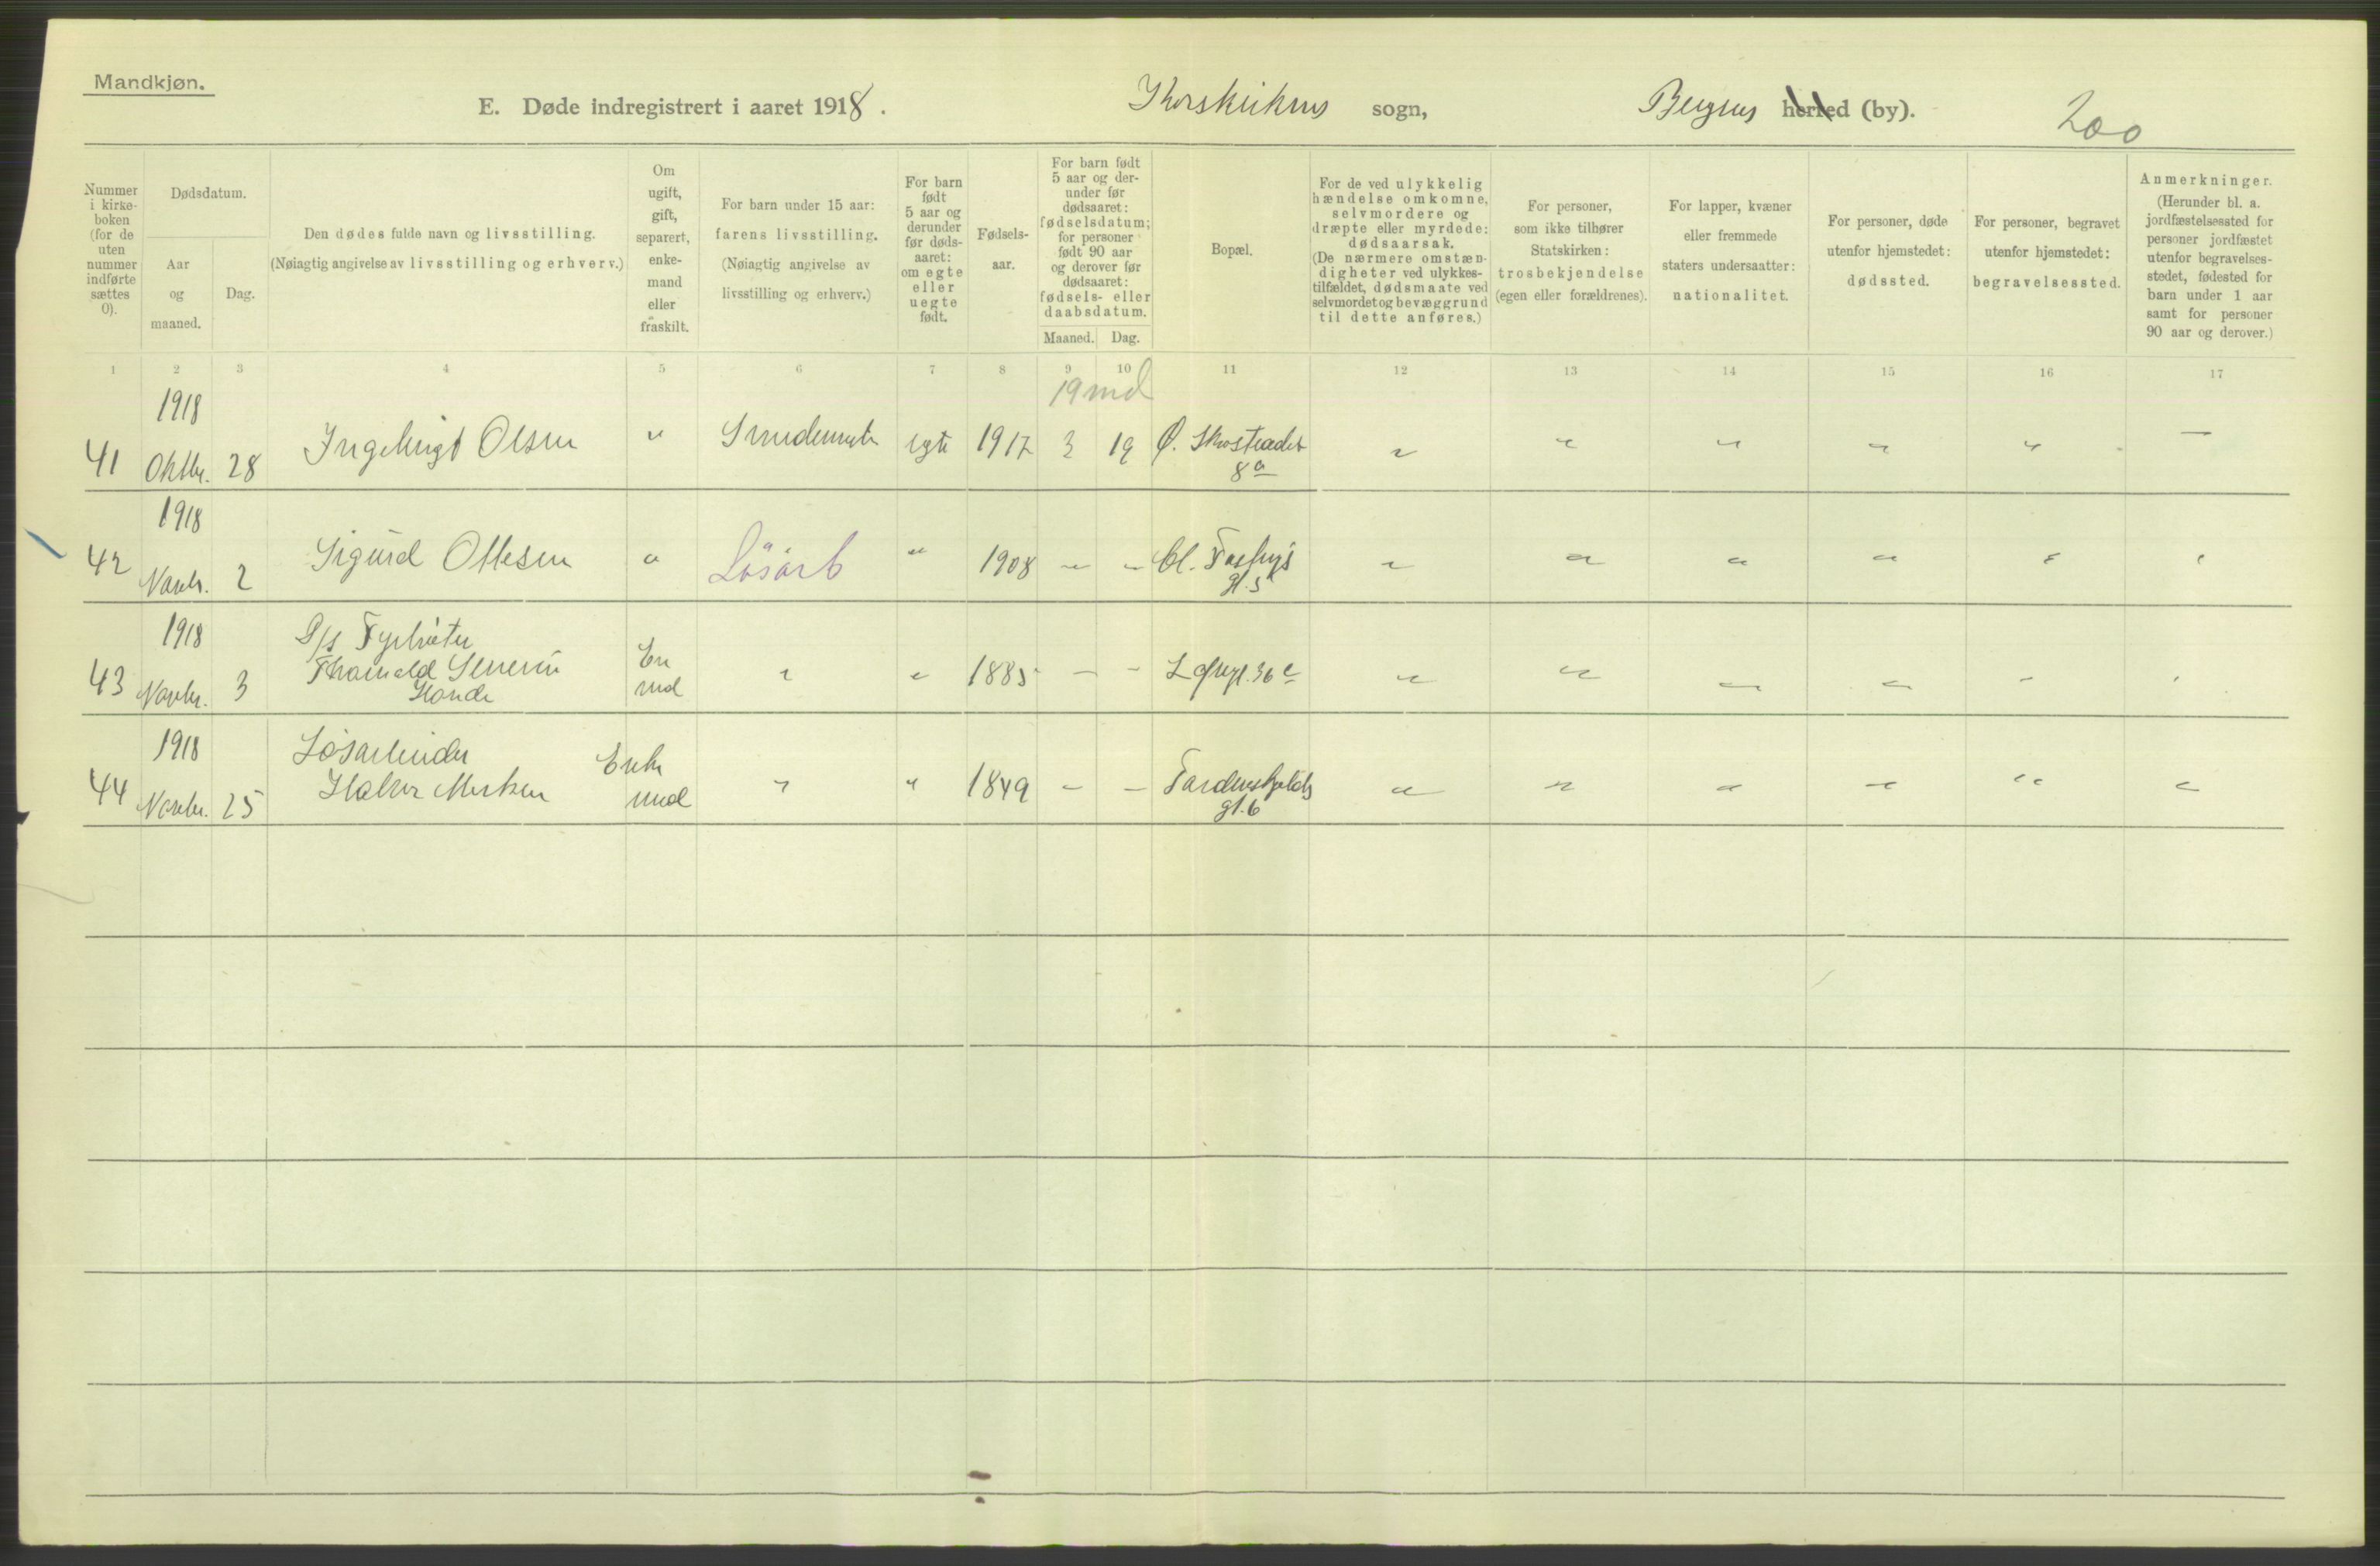 Mandkjøn.
E. Døde indregistrert i aaret 1918.
Korskirkens sogn,
Bergens herred (by).
200
Nummer i kirke-boken (for de uten nummer indførte sættes 0).
Dødsdatum.
Aar og maaned.
Dag.
Den dødes fulde navn og livsstilling.
(Nøiagtig angivelse av livsstilling og erhverv.)
Om ugift, gift, separert, enke-mand eller fraskilt.
For barn under 15 aar: farens livsstilling. (Nøiagtig angivelse av livsstilling og erhverv.)
For barn født 5 aar og derunder før døds-aaret: om egte eller uegte født.
Fødsels-aar.
For barn født 5 aar og der-under før dødsaaret: fødselsdatum; for personer født 90 aar og derover før dødsaaret: fødsels- eller daabsdatum.
Maaned. Dag.
Bopæl.
For de ved ulykkelig hændelse omkomne, selvmordere og dræpte eller myrdede: dødsaarsak. (De nærmere omstæn-digheter ved ulykkes-tilfældet, dødsmaate ved selvmordet og bevæggrund til dette anføres.)
For personer, som ikke tilhører Statskirken: trosbekjendelse (egen eller forældrenes).
For lapper, kvæner eller fremmede staters undersaatter: nationalitet.
For personer, døde utenfor hjemstedet: dødssted.
For personer, begravet utenfor hjemstedet: begravelsessted.
Anmerkninger. (Herunder bl. a. jordfæstelsessted for personer jordfæstet utenfor begravelses-stedet, fødested for barn under 1 aar samt for personer 90 aar og derover.)
1 2 3 4 5 6 7 8 9 10 11 12 13 14 15 16 17
19 md
41 1918 Oktbr. 28 Ingebrigt Olsen " egte 1917 3 19 Ø. Skostrædet 8a " " " " " —
42 1918 Novbr. 2 Sigurd Ottesen " Løsarb " 1908 " " Cl. gt. 5 " " " " " "
43 1918 Novbr. 3 D/s Fyrbøter Severin " " 1885 - - 36c " " " " " "
44 1918 Novbr. 25 Løsarbeider Enke mand " " 1849 - - Tordenskjolds gt. 6 " " " " " "